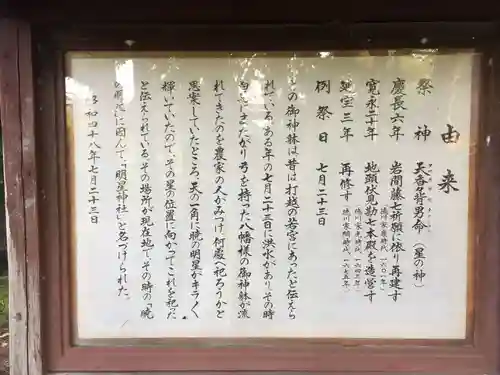 由来
祭神 天香背男命(星の神)
慶長六年 岩間藤七祈願に依り再建す
(徳川家康時代 一六〇一年)
寛永二十年 地頭伏見勘七本殿を造営す
(徳川家光時代 一六四三年)
延宝三年 再修す
(徳川家綱時代 一六七五年)
例祭日 七月二十三日
この御神躰は昔は打越の若宮にあったと伝えら
れているある年の七月二十三日に洪水がありその時
白馬にまたがり弓を持った八幡様の御神躰が流
れてきたのを農家の人がみつけ何処へ祀ろうかと
思案していたところ、天の一角に暁の明星がキラキラ
輝いていたので、その星の位置に向かってこれを祀った
と伝えられている。その場所が現在地で、その時の「暁
の明星」に因んで、「明星神社」と名づけられた。
昭和四十八年七月二十三日